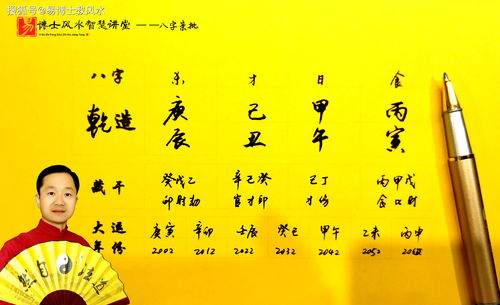 搜狐号@易博士教风水
易 博士风水智慧讲堂 ——八字亲批
Yi Bo Shi Feng Shui Zhi Hui Jiang Tang
八字 杀 才 日 食
乾造 庚 己 甲 丙
辰 丑 午 寅
藏干 癸戊乙 辛己癸 己丁 丙甲戊
印财劫 官才印 才伤 食口财
大运 庚寅 辛卯 壬辰 癸巳 甲午 乙未 丙申
年份 2002 2012 2022 2032 2042 2052 2062
然自法道